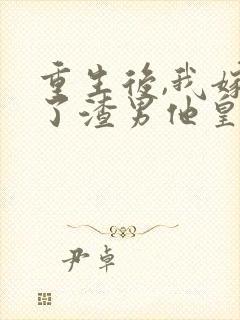 重生後,我嫁
了渣男他皇
尹卓